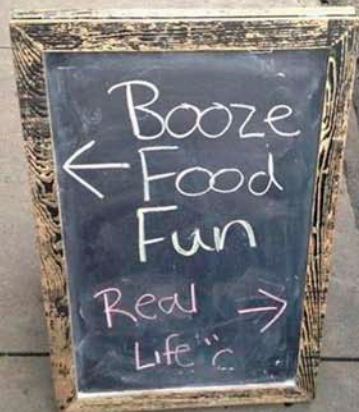 Booze
← Food
Fun
Real →
Life :c